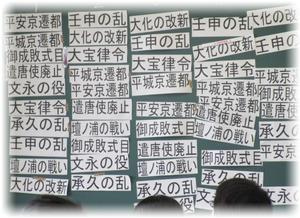 平安京遷都
平城京遷都
御成敗式目
遣唐使廃止
文永の役
大宝律令
承久の乱
壬申の乱
壇ノ浦の戦い
大化の改新
壬申の乱
大化の改新
大宝律令
平城京遷都
平安京遷都
遣唐使廃止
壇ノ浦の戦い
御成敗式目
文永の役
承久の乱
大化の改新
壬申の乱
大宝律令
平城京遷都
平安京遷都
遣唐使廃止
壇ノ浦の戦い
承久の乱
御成敗式目
文永の役
大化の改新
壬申の乱
大宝律令
平城京遷都
平安京遷都
遣唐使廃止
壇ノ浦の戦い
御成敗式目
承久の乱
大化の改新
壬申の乱
平城京遷都
大宝律令
平安京遷都
承久の乱
壇ノ浦の戦い
御成敗式目
遣唐使廃止